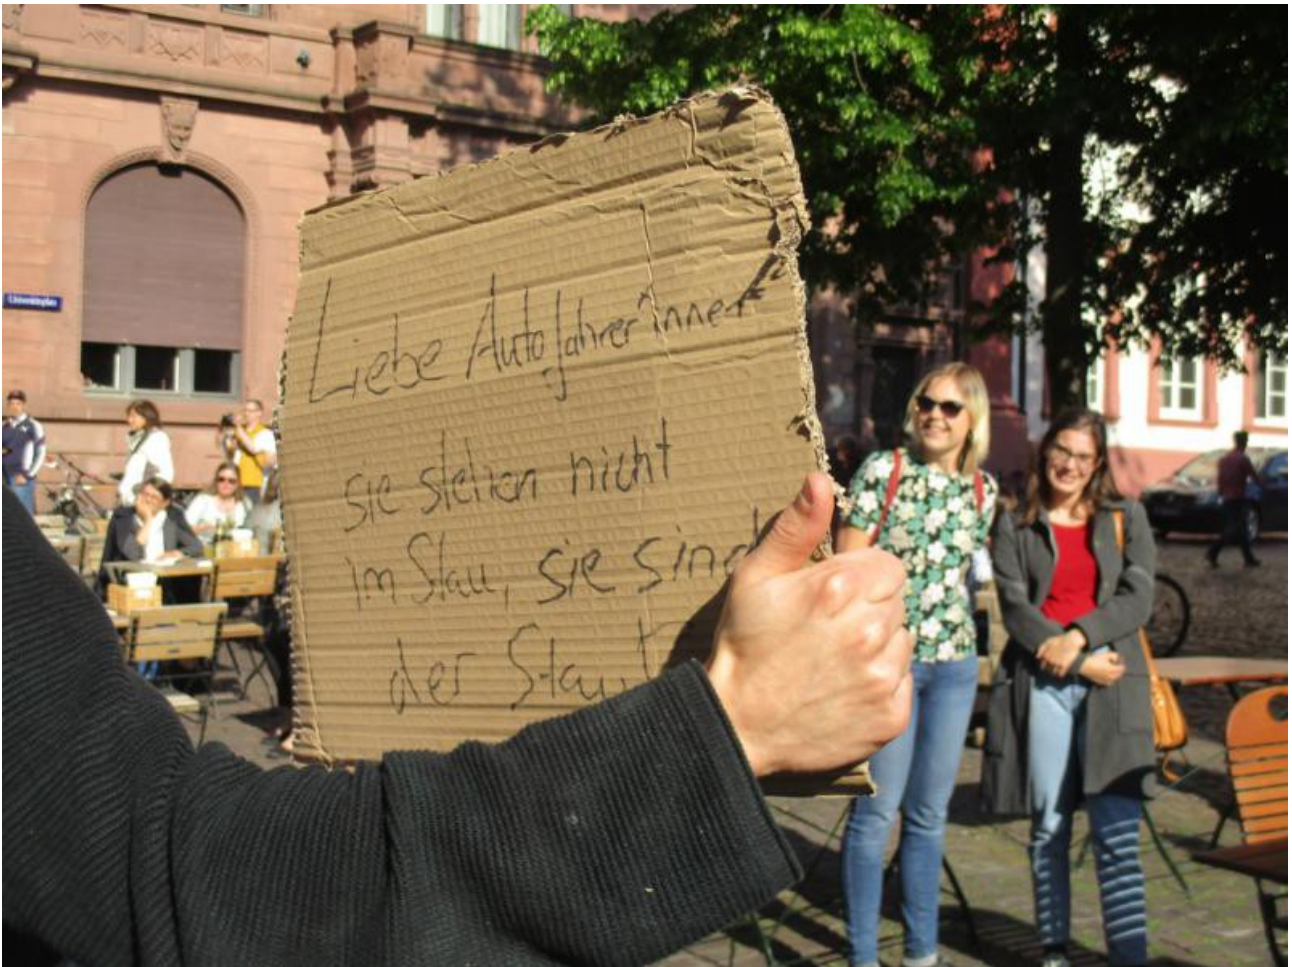 Universitätsplatz
Liebe Autofahrer*innen
sie stehen nicht
im Stau, sie sind
der Stau!